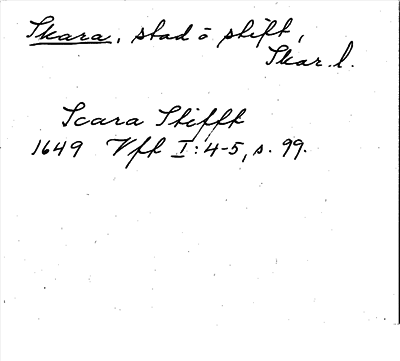 Skara, stad o stift,
Skar. l.
Scara Stifft
1649 Vfk I:4-5, s. 99.